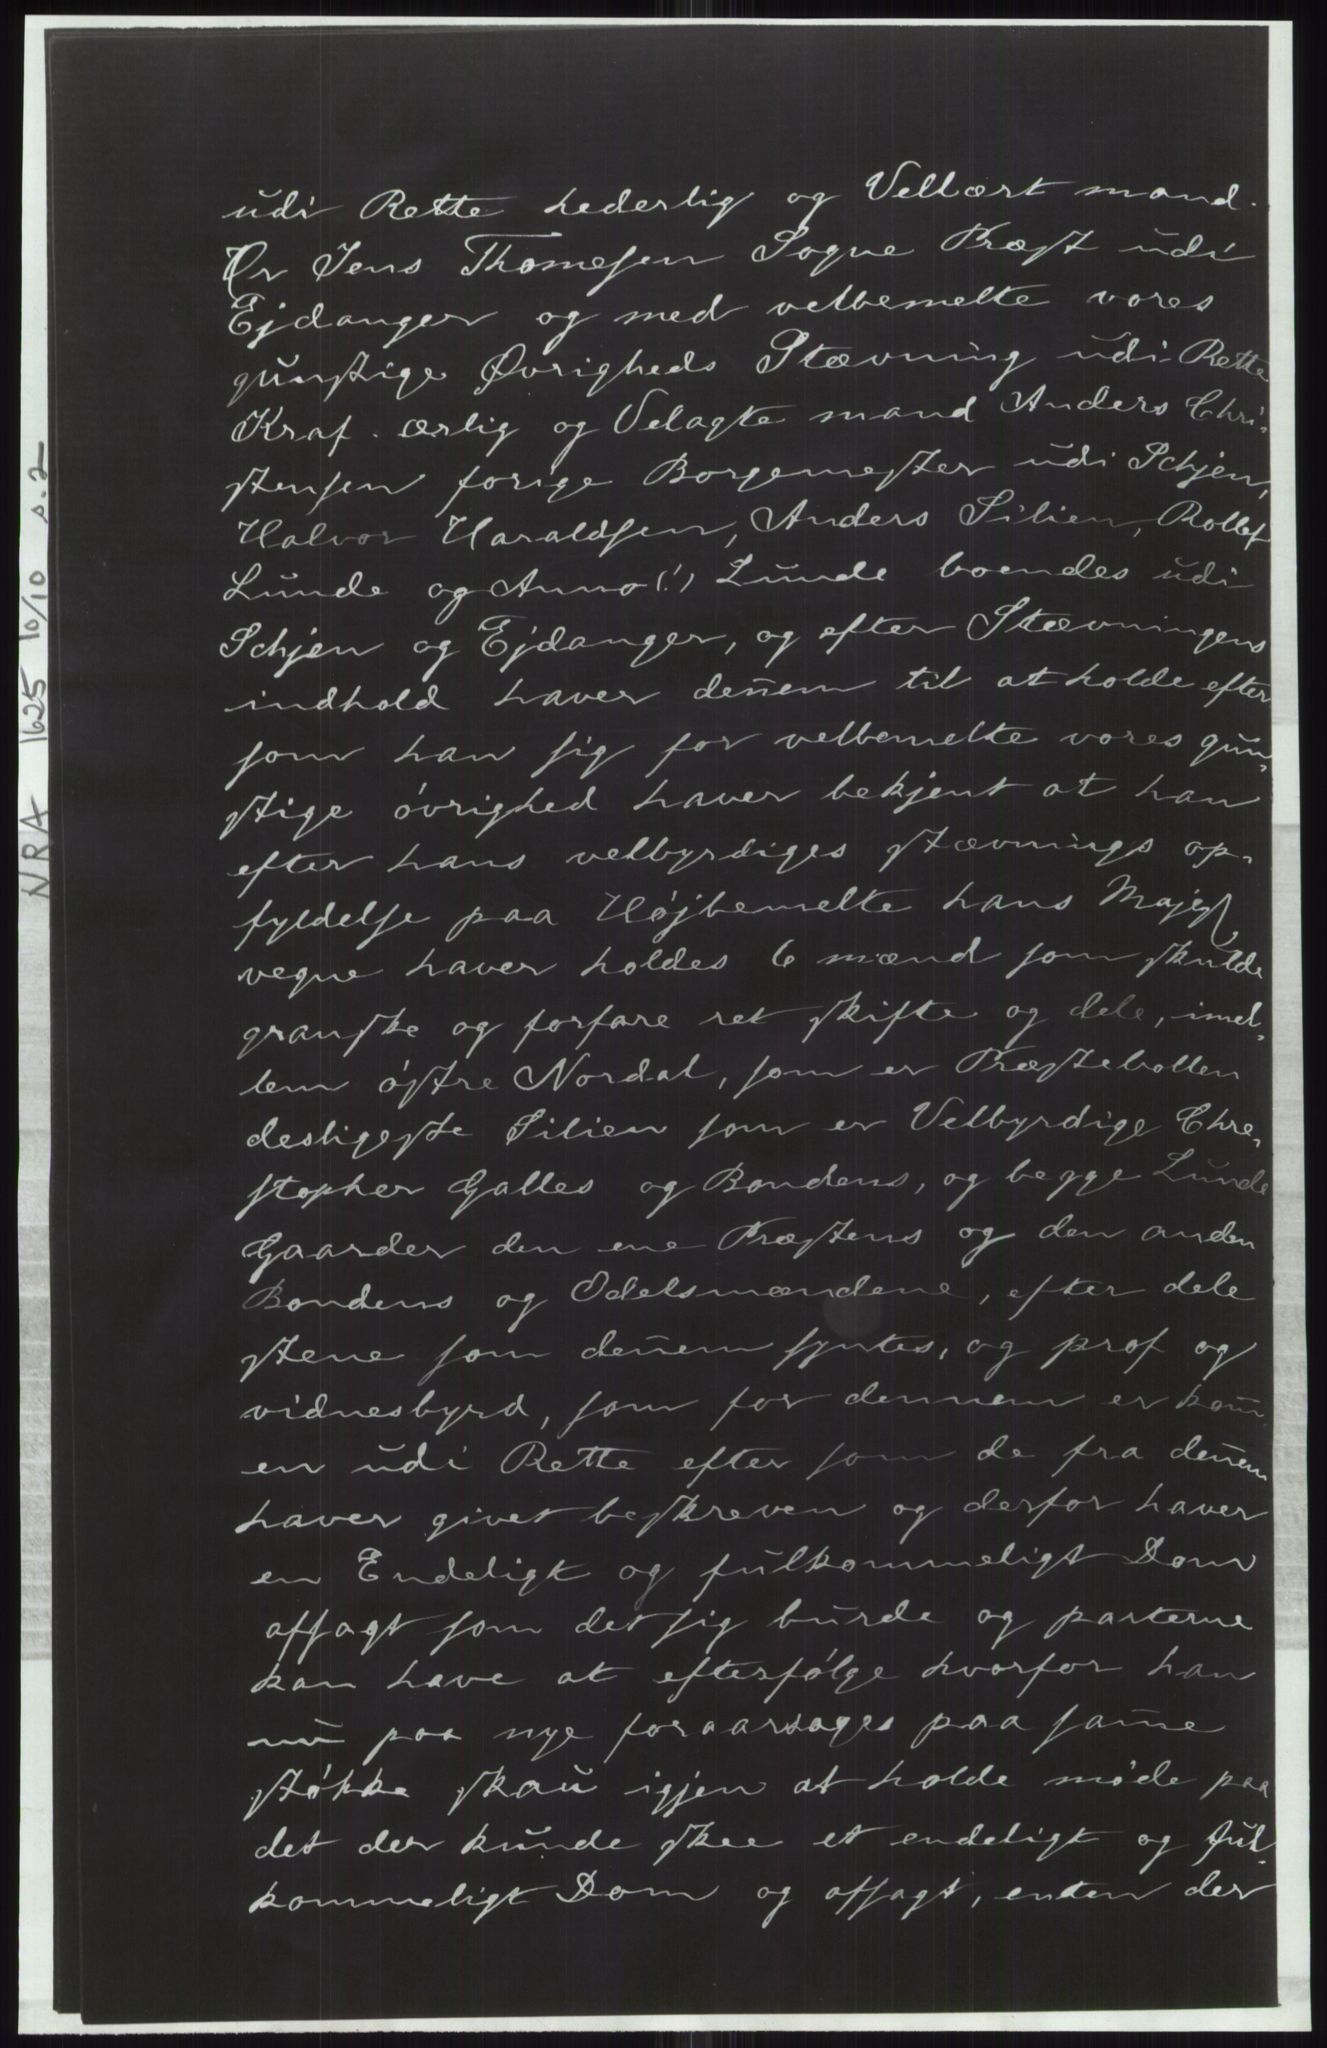 udi Rette hederlig og Vellært mand.
Er Jens Thomesen Sogne Præst udi
Ejdanger og med velbemelte vores
gunstige Øvrigheds Stævning udi Rette
Kraf. ærlig og Velagte mand Anders Chri-
stensen forige Borgemester udi Schjen,
Halvor Haraldsen, Anders Silien, Rollef
Lunde og Anno (!) Lunde boendes udi
Schjen og Ejdanger, og efter Stævningens
indhold haver dennem til at holde efter
som han sig for velbemelte vores gun-
stige øvrighed haver bekjent at han
efter hans velbyrdiges stævnings op-
fyldelse paa Højbemelte hans Majest
vegne haver holdes 6 mænd som skulde
granske og forfare ret skifte og dele, imel-
lem østre Nordal, som er Præstebollen
desligeste Silien som er Velbyrdige Chre-
stopher Galles og Bondens, og begge Lunde
Gaarder den ene Præstens og den anden
Bondens og Odelsmændene, efter dele
stene som dennem syntes, og prof og
vidnesbyrd, som for dennem er kom
en udi Rette efter som de fra dennem
haver givet beskreven og derfor haver
en Endeligt og fulkommeligt Dom
afsagt som det sig burde og parterne
kan have at efterfølge hvorfor han
nu paa nye foraarsages paa samme
støkke skau igjen at holde møde paa
det der kunde skee et endeligt og ful-
kommeligt Dom og afsagt, enten der
NRA 1625 10/10 s. 2